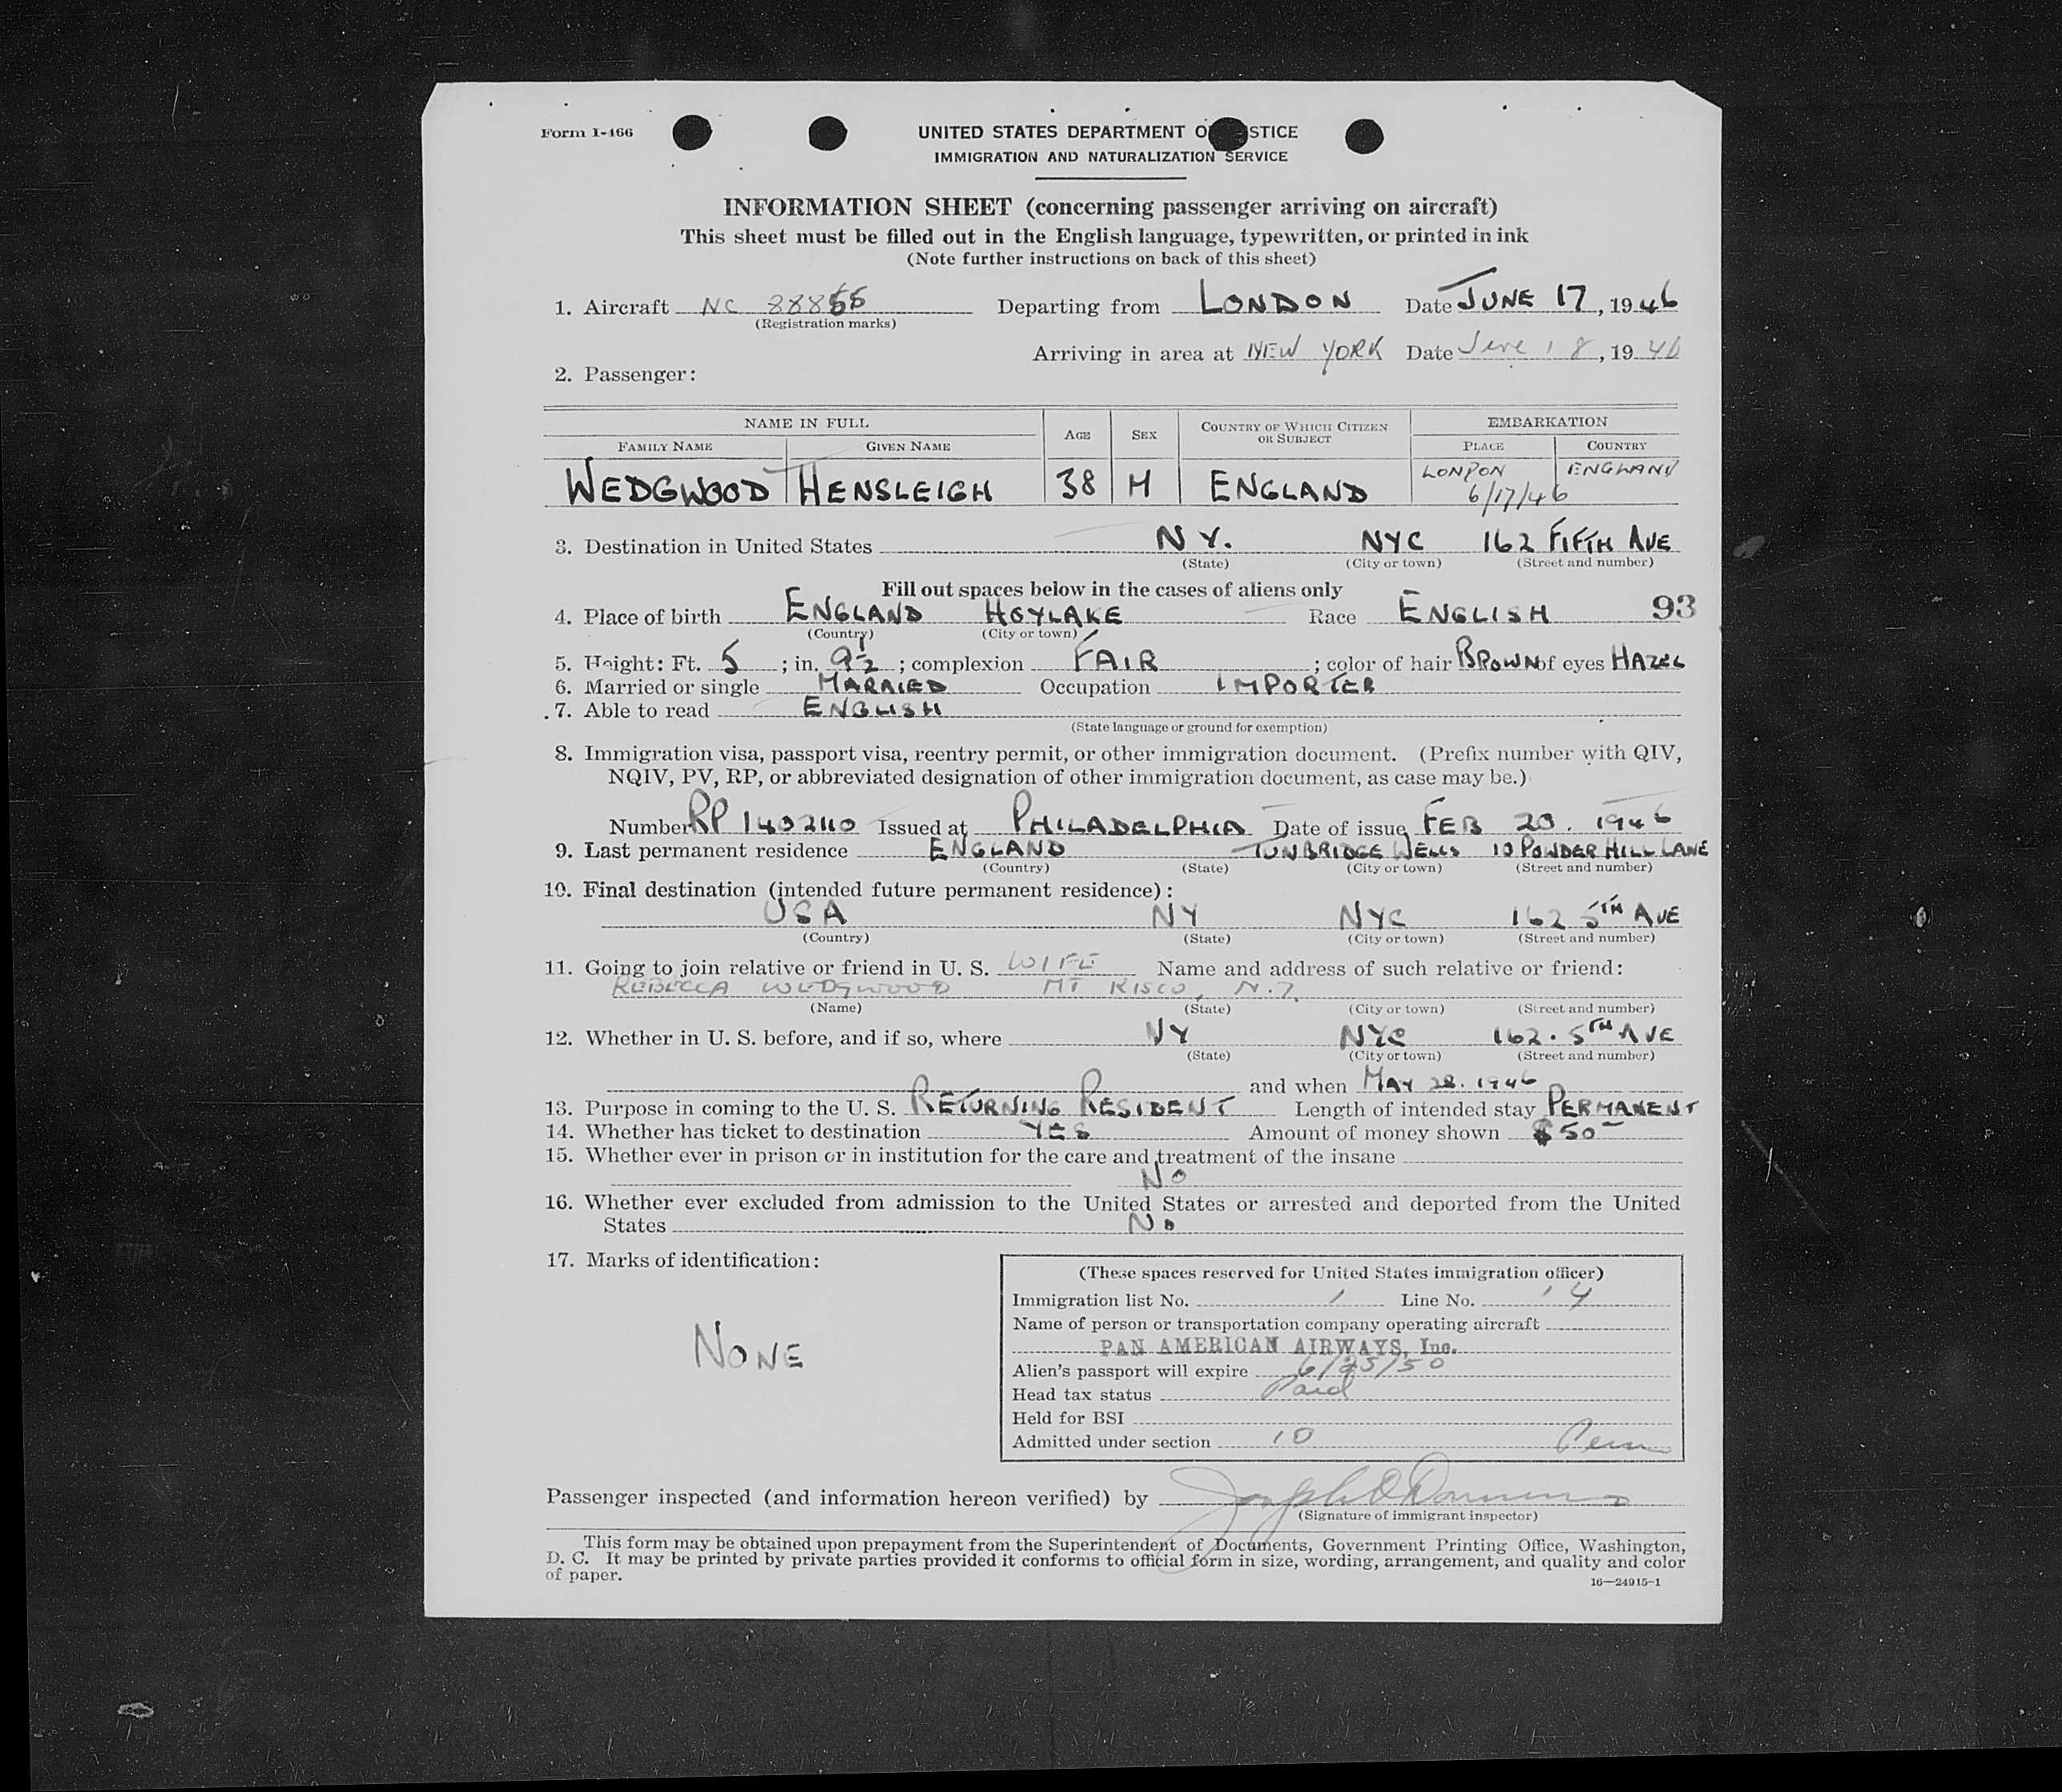 Form I-466
UNITED STATES DEPARTMENT O STICE
IMMIGRATION AND NATURALIZATION SERVICE
INFORMATION SHEET (concerning passenger arriving on aircraft)
This sheet must be filled out in the English language, typewritten, or printed in ink
(Note further instructions on back of this sheet)
1. Aircraft NC 88855 Departing from LONDON Date JUNE 17, 1946
(Registration marks)
Arriving in area at NEW YORK Date June 18, 1946
2. Passenger:
NAME IN FULL AGE SEX COUNTRY OF WHICH CITIZEN OR SUBJECT EMBARKATION
FAMILY NAME GIVEN NAME PLACE COUNTRY
WEDGWOOD HENSLEIGH 38 M ENGLAND LONDON ENGLAND
6/17/46
3. Destination in United States N Y. NYC 162 FIFTH AVE
(State) (City or town) (Street and number)
Fill out spaces below in the cases of aliens only
4. Place of birth ENGLAND HOYLAKE Race ENGLISH 93
(Country) (City or town)
5. Height: Ft. 5; in. 9½; complexion FAIR; color of hair BROWN of eyes HAZEL
6. Married or single MARRIED Occupation IMPORTER
7. Able to read ENGLISH
(State language or ground for exemption)
8. Immigration visa, passport visa, reentry permit, or other immigration document. (Prefix number with QIV,
NQIV, PV, RP, or abbreviated designation of other immigration document, as case may be.)
Number RP 1402110 Issued at PHILADELPHIA Date of issue FEB 20. 1946
9. Last permanent residence ENGLAND TUNBRIDGE WELLS 10 POWDER HILL LANE
(Country) (State) (City or town) (Street and number)
10. Final destination (intended future permanent residence):
USA NY NYC 162 5TH AVE
(Country) (State) (City or town) (Street and number)
11. Going to join relative or friend in U. S. WIFE Name and address of such relative or friend:
REBECCA WEDGWOOD MT KISCO, N.Y.
(Name) (State) (City or town) (Street and number)
12. Whether in U. S. before, and if so, where NY NYC 162. 5TH AVE
(State) (City or town) (Street and number)
and when MAY 28. 1946
13. Purpose in coming to the U. S. RETURNING RESIDENT Length of intended stay PERMANENT
14. Whether has ticket to destination YES Amount of money shown $50-
15. Whether ever in prison or in institution for the care and treatment of the insane
NO
16. Whether ever excluded from admission to the United States or arrested and deported from the United
States NO
17. Marks of identification:
NONE
(These spaces reserved for United States immigration officer)
Immigration list No. 1 Line No. 4
Name of person or transportation company operating aircraft
PAN AMERICAN AIRWAYS, Inc.
Alien's passport will expire 6/25/50
Head tax status Paid
Held for BSI
Admitted under section 10 Perm
Passenger inspected (and information hereon verified) by
(Signature of immigrant inspector)
This form may be obtained upon prepayment from the Superintendent of Documents, Government Printing Office, Washington,
D. C. It may be printed by private parties provided it conforms to official form in size, wording, arrangement, and quality and color
of paper.
16—24915-1